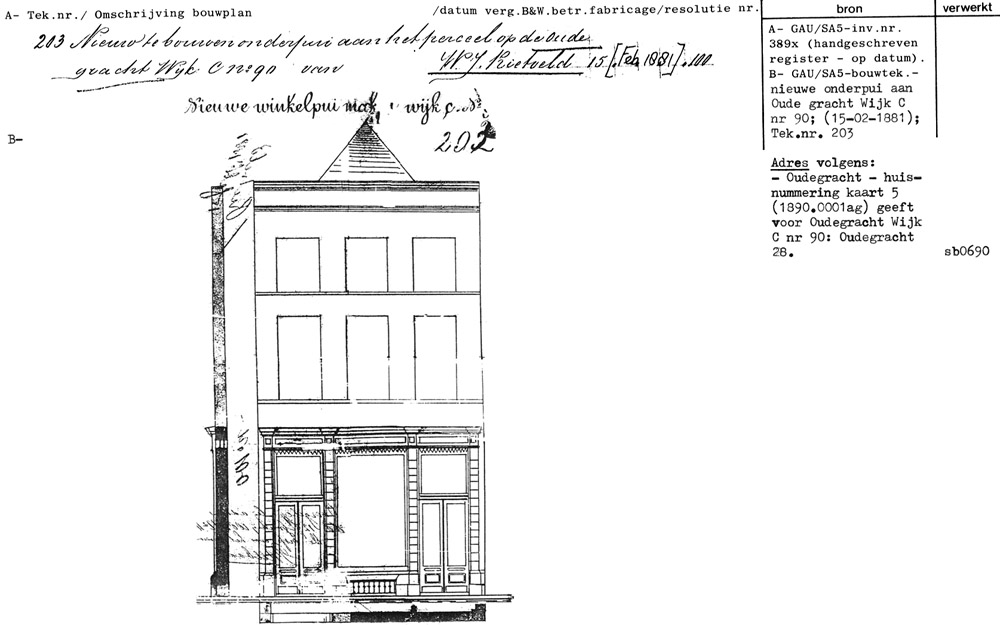 A- Tek.nr./ Omschrijving bouwplan /datum verg.B&W.betr.fabricage/resolutie nr.
203 Nieuw te bouwen onderpui aan het perceel op de oude
gracht Wijk C no 90 van W. J. Rietveld 15 [Feb 1881]. 100
Nieuwe winkelpui wijk C. No
202
B-
bron
A- GAU/SA5-inv.nr.
389x (handgeschreven
register - op datum).
B- GAU/SA5-bouwtek.-
nieuwe onderpui aan
Oude gracht Wijk C
nr 90; (15-02-1881);
Tek.nr. 203
Adres volgens:
- Oudegracht - huis-
nummering kaart 5
(1890.0001ag) geeft
voor Oudegracht Wijk
C nr 90: Oudegracht
28.
verwerkt
sb0690